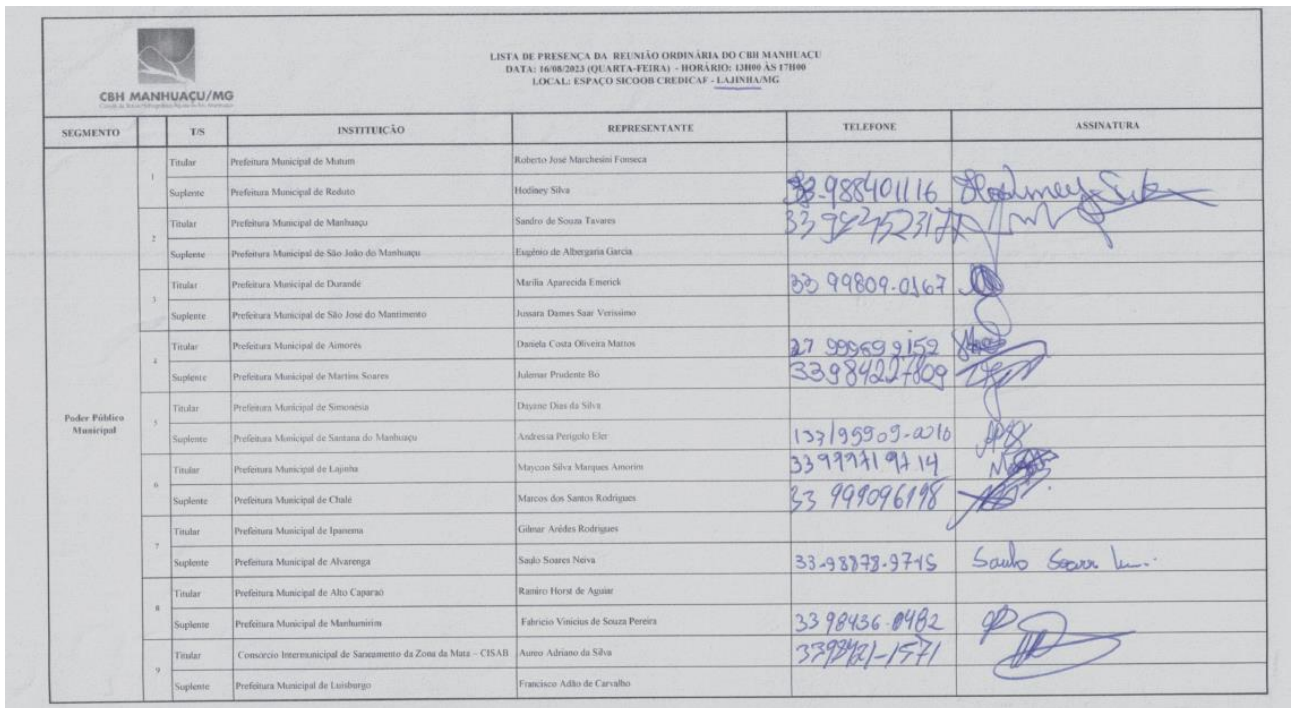 CBH MANHUAÇU/MG
LISTA DE PRESENÇA DA REUNIÃO ORDINÁRIA DO CBH MANHUAÇU
DATA: 16/08/2023 (QUARTA-FEIRA) - HORÁRIO: 13H00 ÀS 17H00
LOCAL: ESPAÇO SICOOB CREDICAF - LAJINHA/MG
SEGMENTO T/S INSTITUIÇÃO REPRESENTANTE TELEFONE ASSINATURA
Poder Público
Municipal
1 Titular Prefeitura Municipal de Mutum Roberto José Marchesini Fonseca
Suplente Prefeitura Municipal de Reduto Hodiney Silva 33-988401116
2 Titular Prefeitura Municipal de Manhuaçu Sandro de Souza Tavares
Suplente Prefeitura Municipal de São João do Manhuaçu Eugênio de Albergaria Garcia
3 Titular Prefeitura Municipal de Durandé Marília Aparecida Emerick 33 99809-0167
Suplente Prefeitura Municipal de São José do Mantimento Jussara Dames Saar Veríssimo
4 Titular Prefeitura Municipal de Aimorés Daniela Costa Oliveira Mattos
Suplente Prefeitura Municipal de Martins Soares Julemar Prudente Bó 33984227809
5 Titular Prefeitura Municipal de Simonésia Dayane Dias da Silva
Suplente Prefeitura Municipal de Santana do Manhuaçu Andressa Perigolo Eler
6 Titular Prefeitura Municipal de Lajinha Maycon Silva Marques Amorim
Suplente Prefeitura Municipal de Chalé Marcos dos Santos Rodrigues 33 999096198
7 Titular Prefeitura Municipal de Ipanema Gilmar Arêdes Rodrigues
Suplente Prefeitura Municipal de Alvarenga Saulo Soares Neiva 33-98878-9715 Saulo
8 Titular Prefeitura Municipal de Alto Caparaó Ramiro Horst de Aguiar
Suplente Prefeitura Municipal de Manhumirim Fabrício Vinicius de Souza Pereira 33 98436-0482
9 Titular Consórcio Intermunicipal de Saneamento da Zona da Mata – CISAB Aureo Adriano da Silva
Suplente Prefeitura Municipal de Luisburgo Francisco Adão de Carvalho